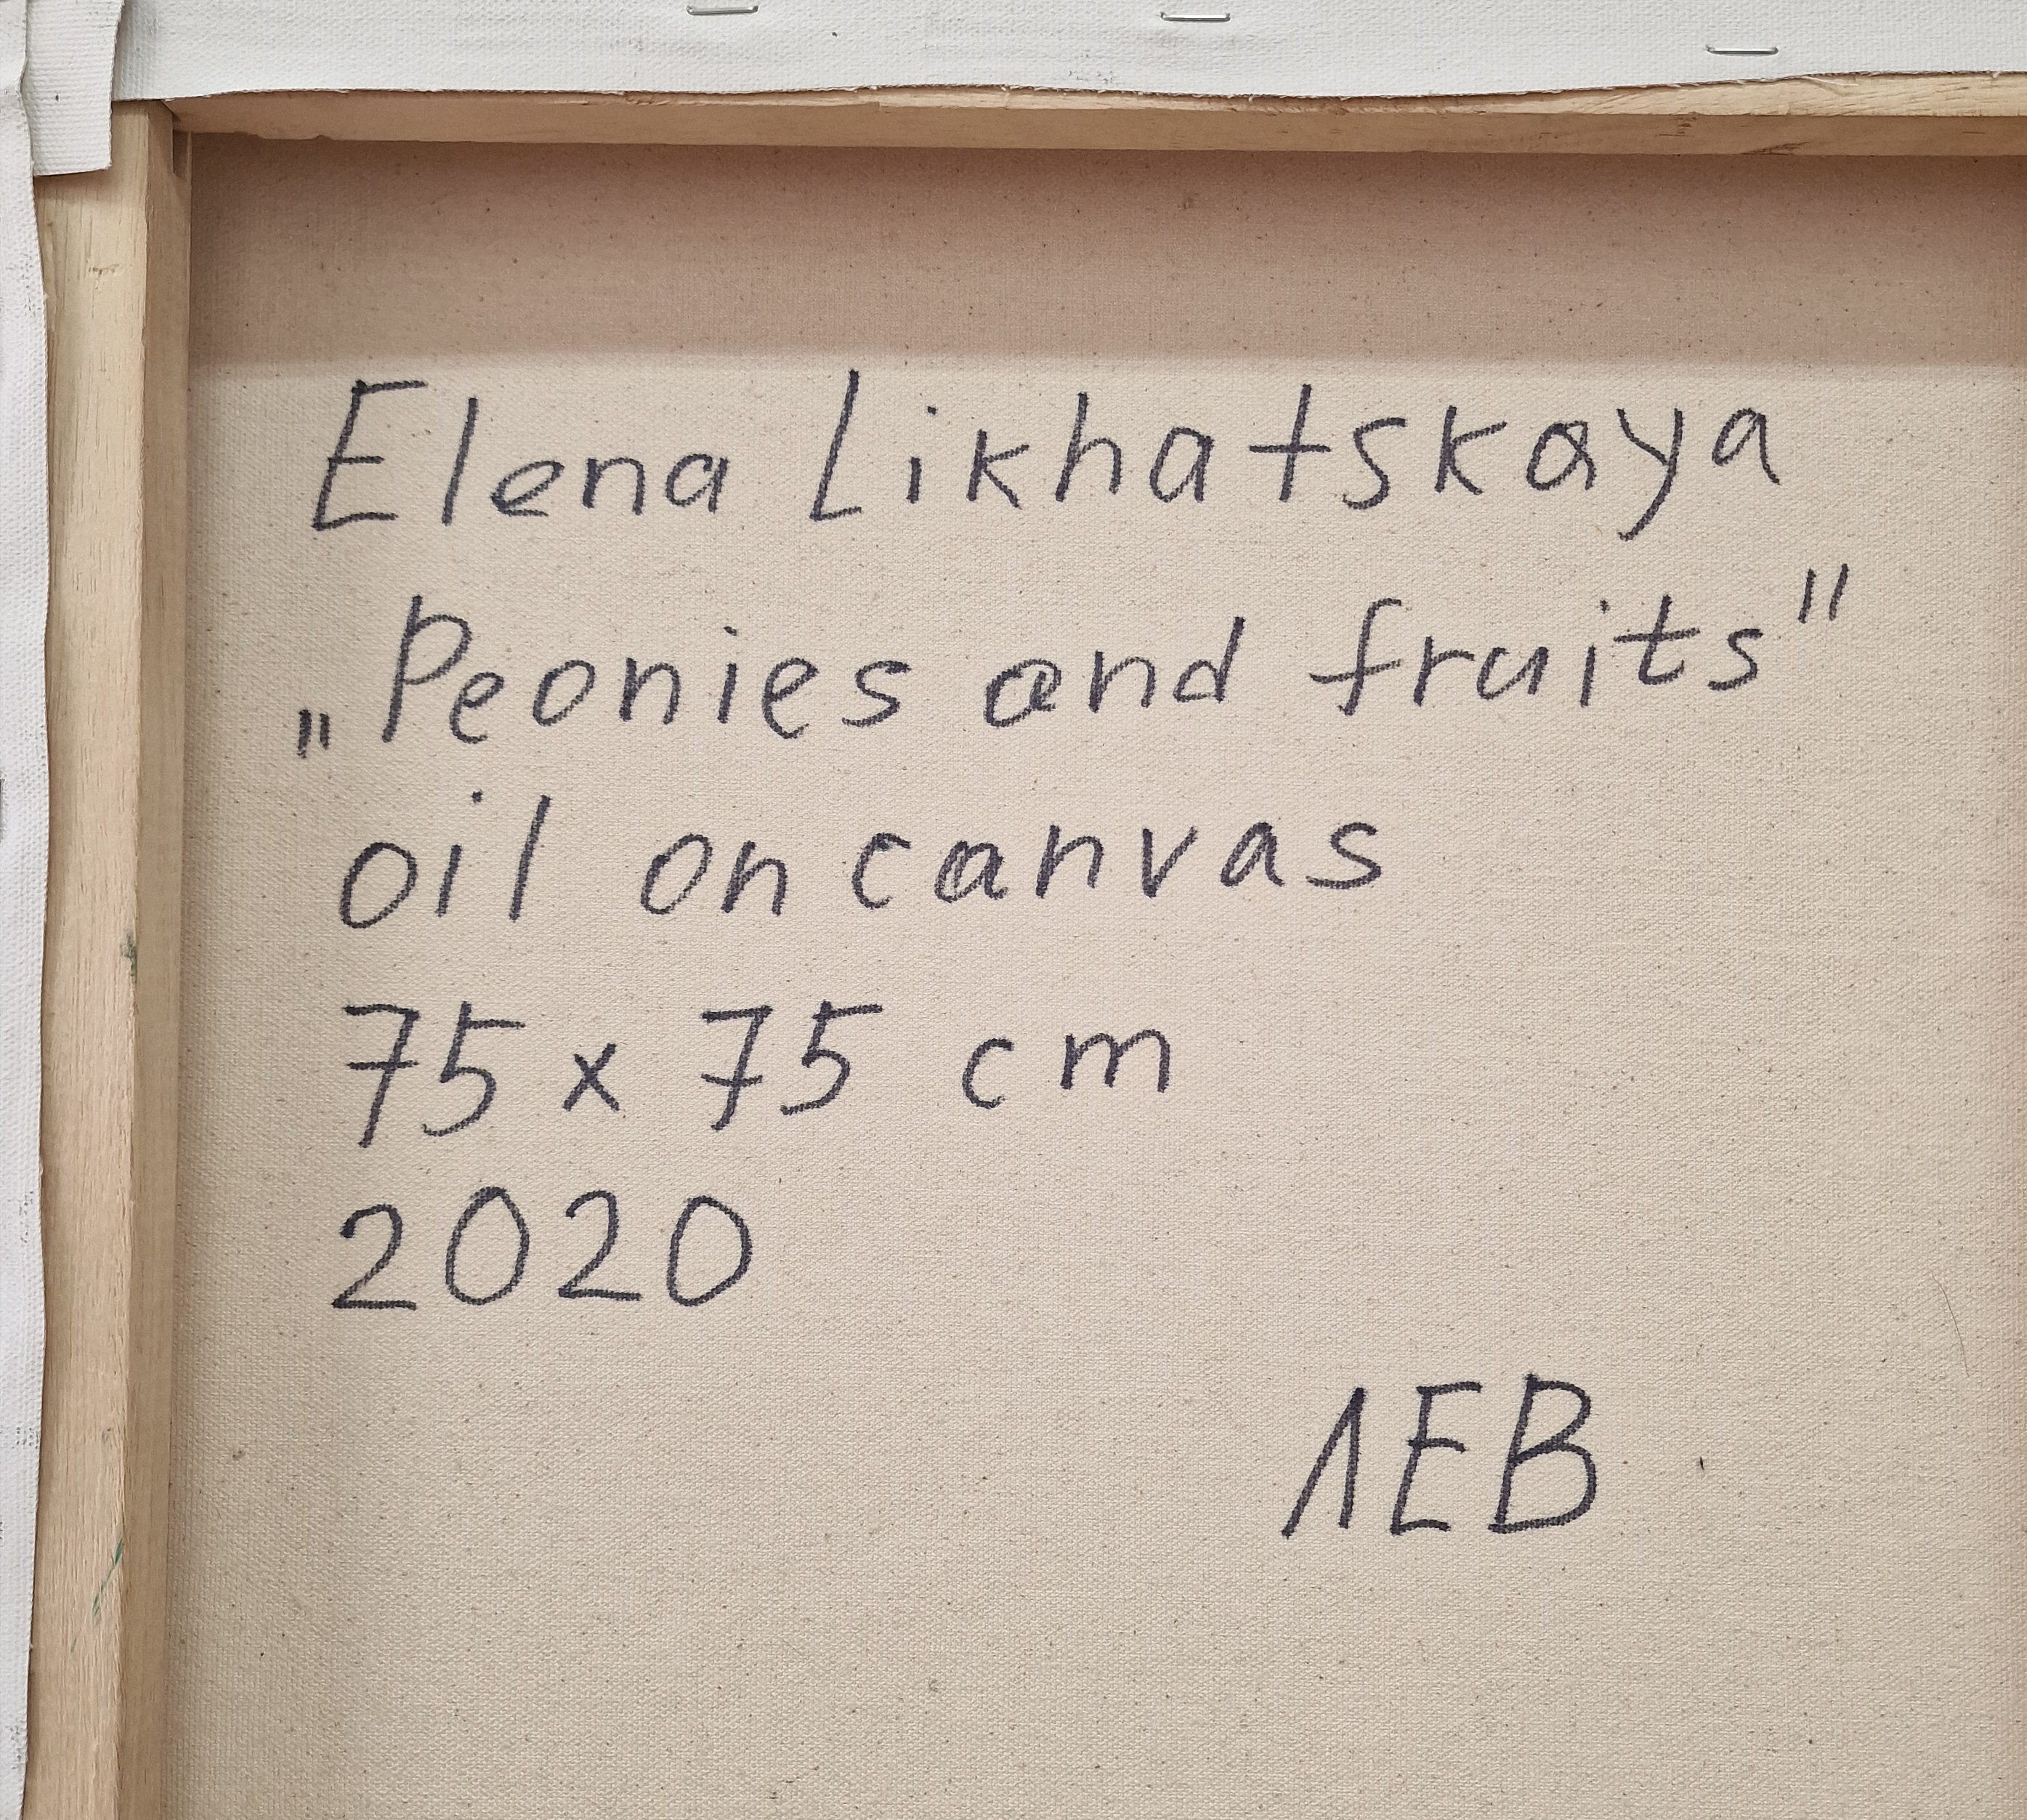 Elena Likhatskaya
„Peonies and fruits"
oil on canvas
75 x 75 cm
2020
ЛЕВ